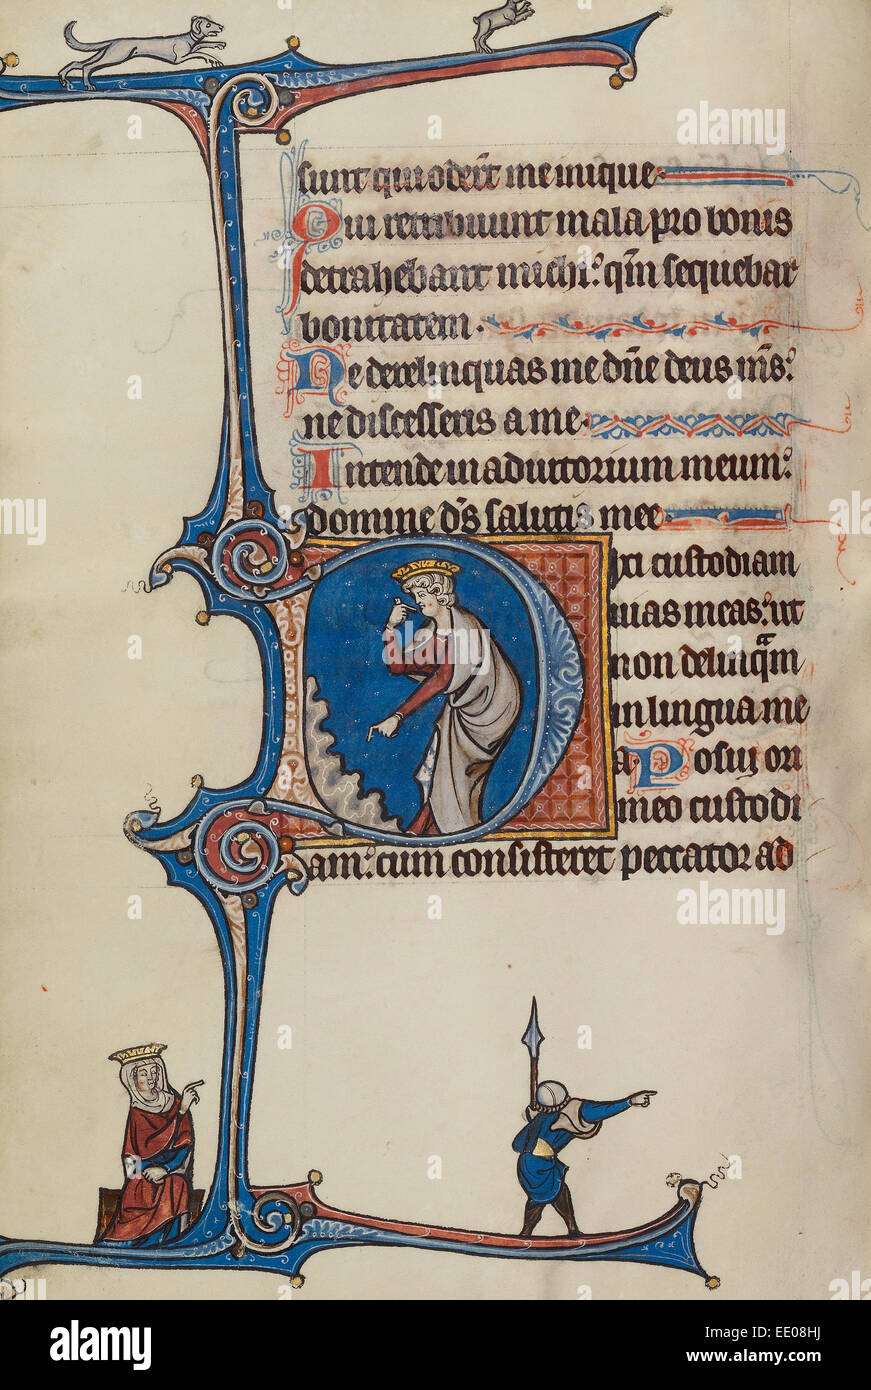 sunt qui oder̄t me inique
Qui retribuunt mala pro bonis
detrahebant michi: qm̄ sequebar
bonitatem.
Ne derelinquas me dn̄e deus m̄s:
ne discesseris a me.
Intende in adiutorium meum:
domine d̄s salutis mee
Dixi custodiam
uias meas: ut
non delinqam
in lingua me
a. Posui ori
meo custodi
am: cum consisteret peccator ad
alamy
alamy stock photo
EE08HJ
www.alamy.com